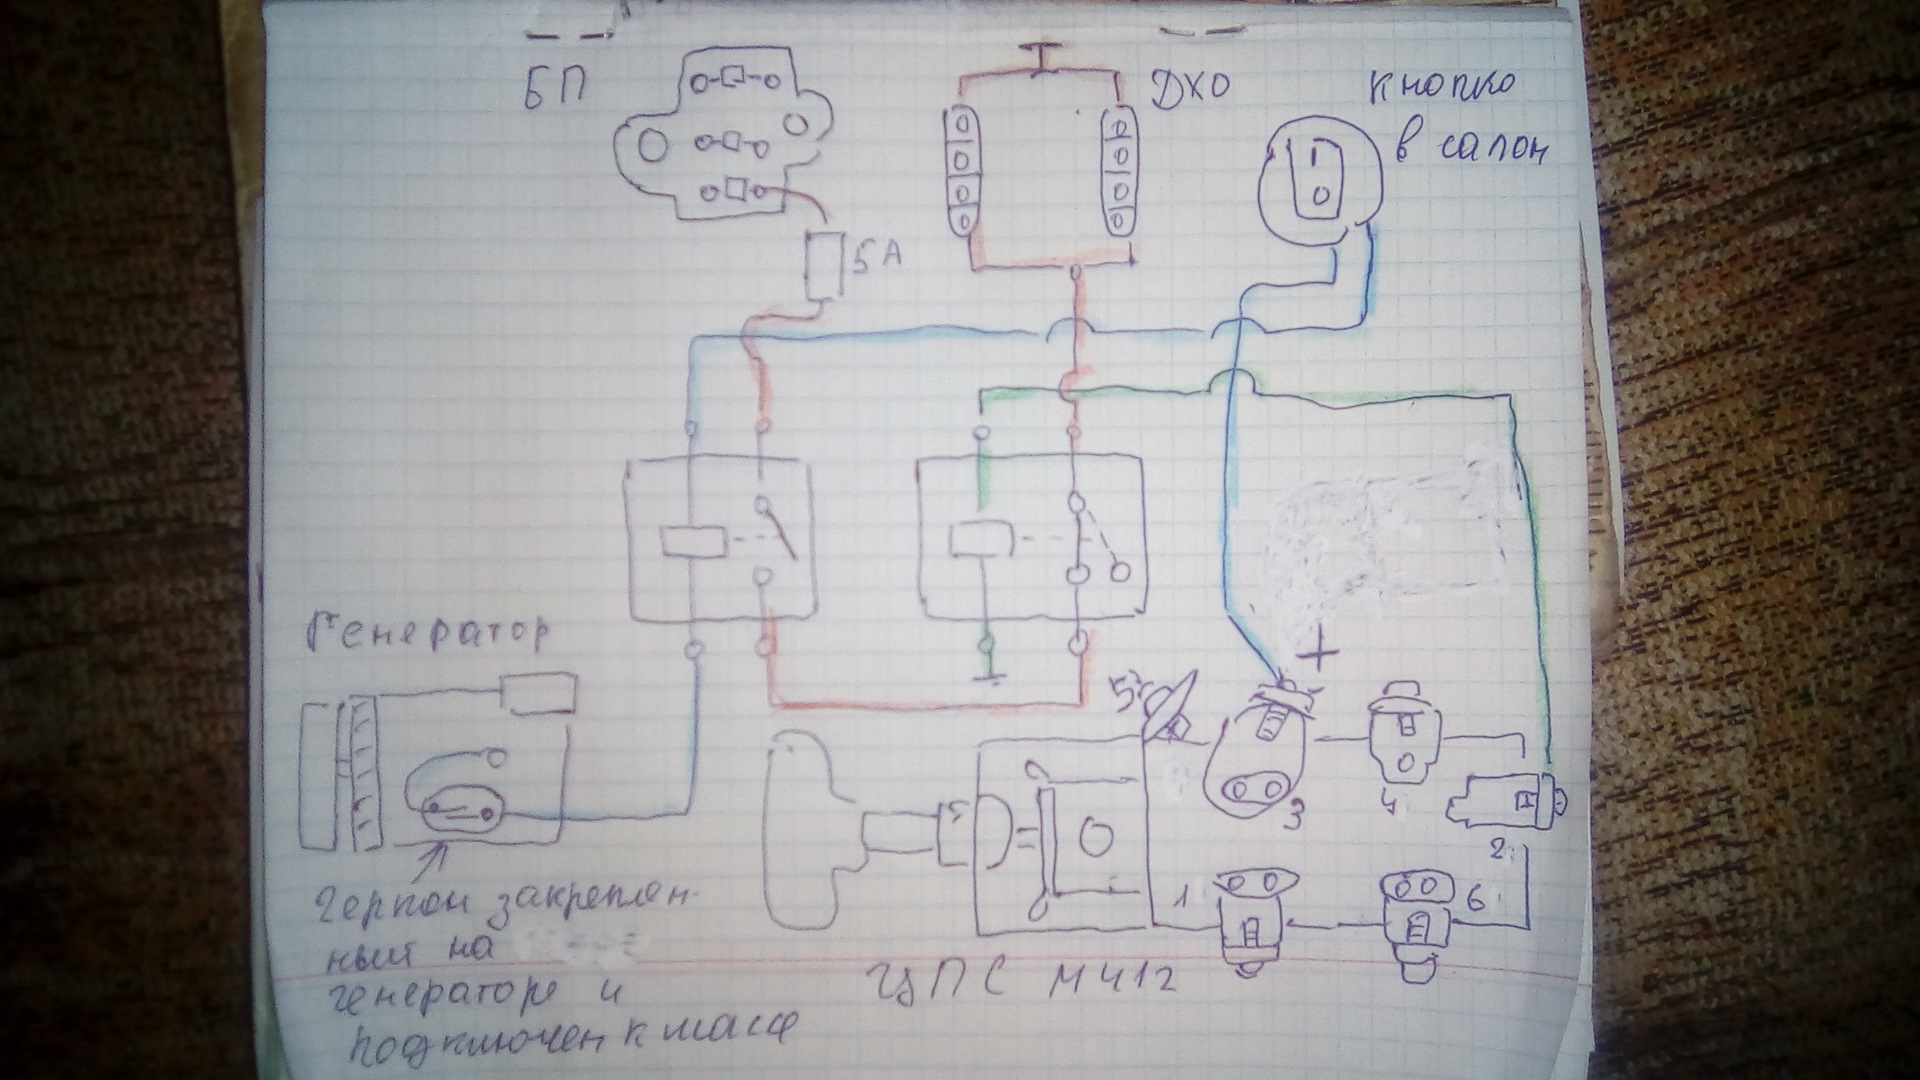 БП
ДХО
кнопка
в салон
5А
Генератор
+
5
3
4
2
1
6
Геркон закреплен-
ный на
генераторе и
подключен к массе
ЦПС М412